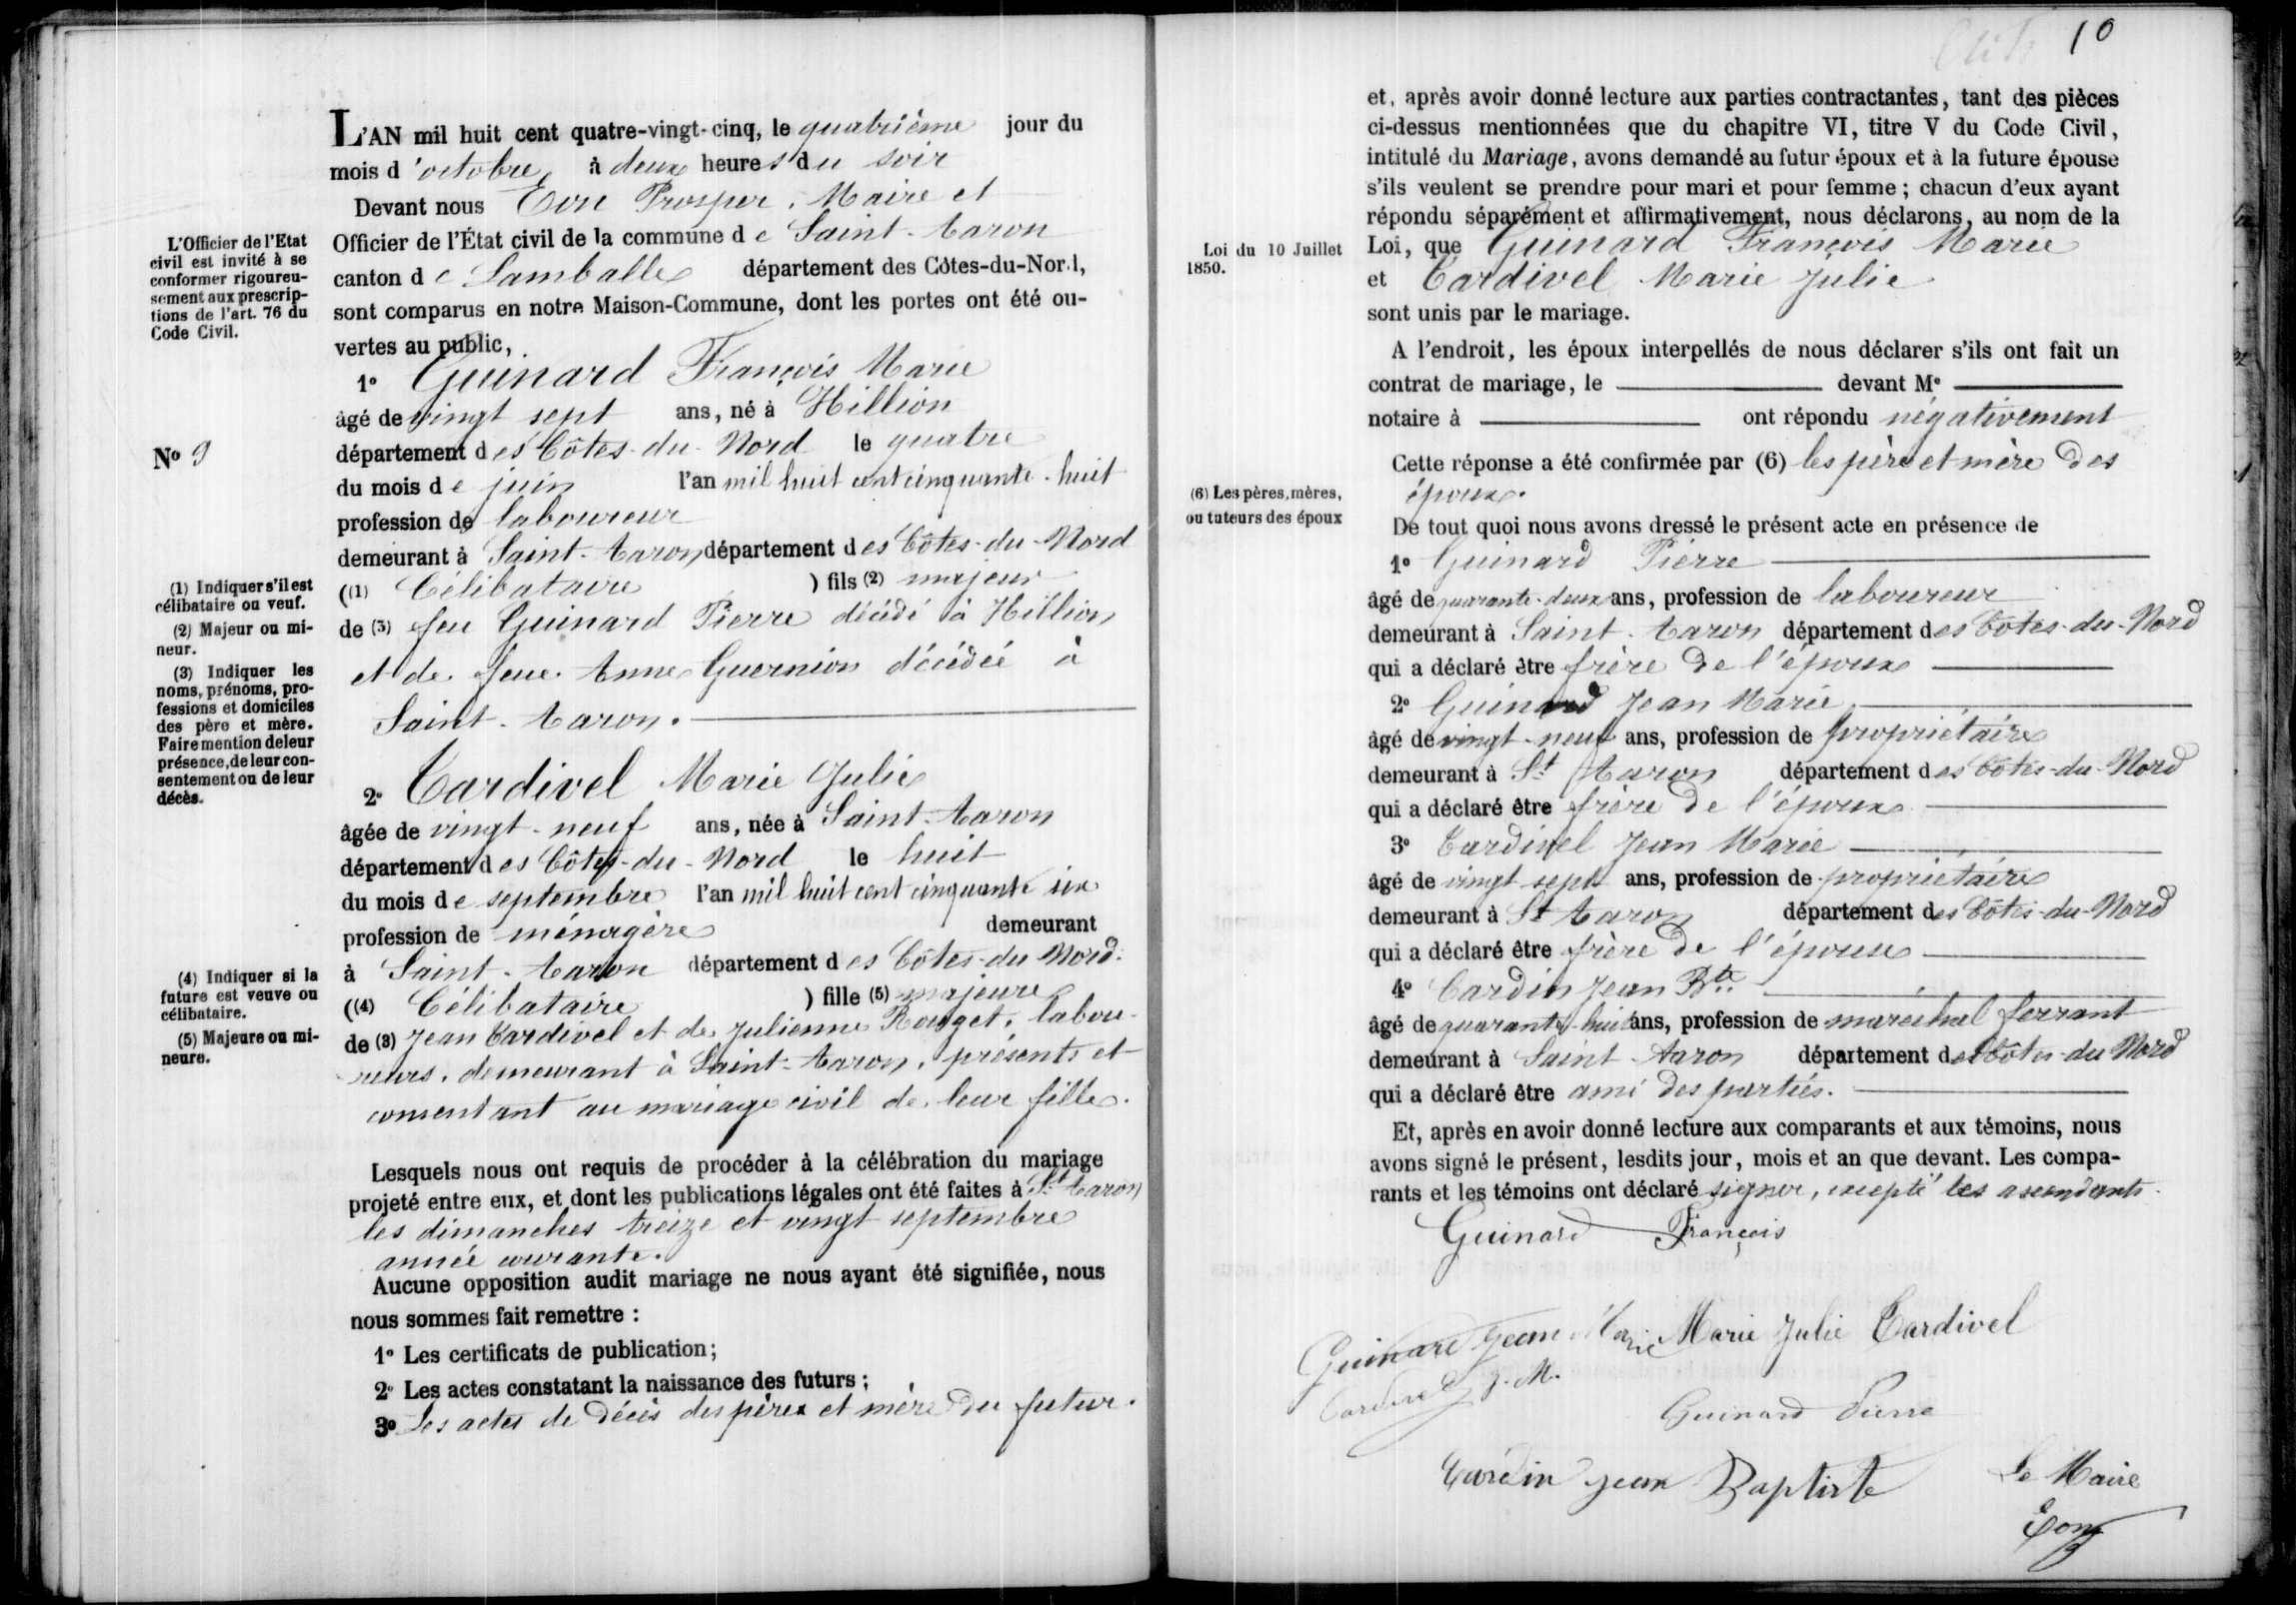 L'AN mil huit cent quatre-vingt-cinq, le quatrième jour du
mois d'octobre, à deux heures du soir
Devant nous Eon Prosper, Maire et
Officier de l'État civil de la commune de Saint-Aaron
canton de Lamballe département des Côtes-du-Nord,
sont comparus en notre Maison-Commune, dont les portes ont été ou-
vertes au public,
1° Guinard François Marie
âgé de vingt sept ans, né à Hillion
département des Côtes-du-Nord le quatre
du mois de juin l'an mil huit cent cinquante-huit
profession de laboureur
demeurant à Saint-Aaron département des Côtes-du-Nord
((1) Célibataire ) fils (2) majeur
de (3) feu Guinard Pierre décédé à Hillion
et de feue Anne Guernion décédée à
Saint-Aaron.
2° Cardivel Marie Julie
âgée de vingt-neuf ans, née à Saint-Aaron
département des Côtes-du-Nord le huit
du mois de septembre l'an mil huit cent cinquante six
profession de ménagère demeurant
à Saint-Aaron département des Côtes-du-Nord.
((4) Célibataire ) fille (5) majeure
de (3) Jean Cardivel et de Julienne Rouget, labou-
reurs, demeurant à Saint-Aaron, présents et
consentant au mariage civil de leur fille.
Lesquels nous ont requis de procéder à la célébration du mariage
projeté entre eux, et dont les publications légales ont été faites à St Aaron
les dimanches treize et vingt septembre
année courante.
Aucune opposition audit mariage ne nous ayant été signifiée, nous
nous sommes fait remettre :
1° Les certificats de publication;
2° Les actes constatant la naissance des futurs;
3° Les actes de décès des père et mère du futur.
L'Officier de l'Etat
civil est invité à se
conformer rigoureu-
sement aux prescrip-
tions de l'art. 76 du
Code Civil.
N° 9
(1) Indiquer s'il est
célibataire ou veuf.
(2) Majeur ou mi-
neur.
(3) Indiquer les
noms, prénoms, pro-
fessions et domiciles
des père et mère.
Faire mention de leur
présence, de leur con-
sentement ou de leur
décès.
(4) Indiquer si la
future est veuve ou
célibataire.
(5) Majeure ou mi-
neure.
10
et, après avoir donné lecture aux parties contractantes, tant des pièces
ci-dessus mentionnées que du chapitre VI, titre V du Code Civil,
intitulé du Mariage, avons demandé au futur époux et à la future épouse
s'ils veulent se prendre pour mari et pour femme ; chacun d'eux ayant
répondu séparément et affirmativement, nous déclarons, au nom de la
Loi, que Guinard François Marie
et Cardivel Marie Julie
sont unis par le mariage.
A l'endroit, les époux interpellés de nous déclarer s'ils ont fait un
contrat de mariage, le devant Me
notaire à ont répondu négativement
Cette réponse a été confirmée par (6) les père et mère des
époux.
De tout quoi nous avons dressé le présent acte en présence de
1° Guinard Pierre
âgé de quarante-deux ans, profession de laboureur
demeurant à Saint-Aaron département des Côtes-du-Nord
qui a déclaré être frère de l'époux
2° Guinard Jean Marie
âgé de vingt-neuf ans, profession de propriétaire
demeurant à St Aaron département des Côtes-du-Nord
qui a déclaré être frère de l'époux
3° Cardivel Jean Marie
âgé de vingt sept ans, profession de propriétaire
demeurant à St Aaron département des Côtes-du-Nord
qui a déclaré être frère de l'épouse
4° Cardin Jean Bte
âgé de quarante-huit ans, profession de maréchal ferrant
demeurant à Saint-Aaron département des Côtes-du-Nord
qui a déclaré être ami des parties.
Et, après en avoir donné lecture aux comparants et aux témoins, nous
avons signé le présent, lesdits jour, mois et an que devant. Les compa-
rants et les témoins ont déclaré signer, excepté les ascendants.
Loi du 10 Juillet
1850.
(6) Les pères, mères,
ou tuteurs des époux
Guinard François
Guinard Jean Marie Marie Julie Cardivel
Cardivel J. M.
Guinard Pierre
Cardin Jean Baptiste Le Maire
Eon